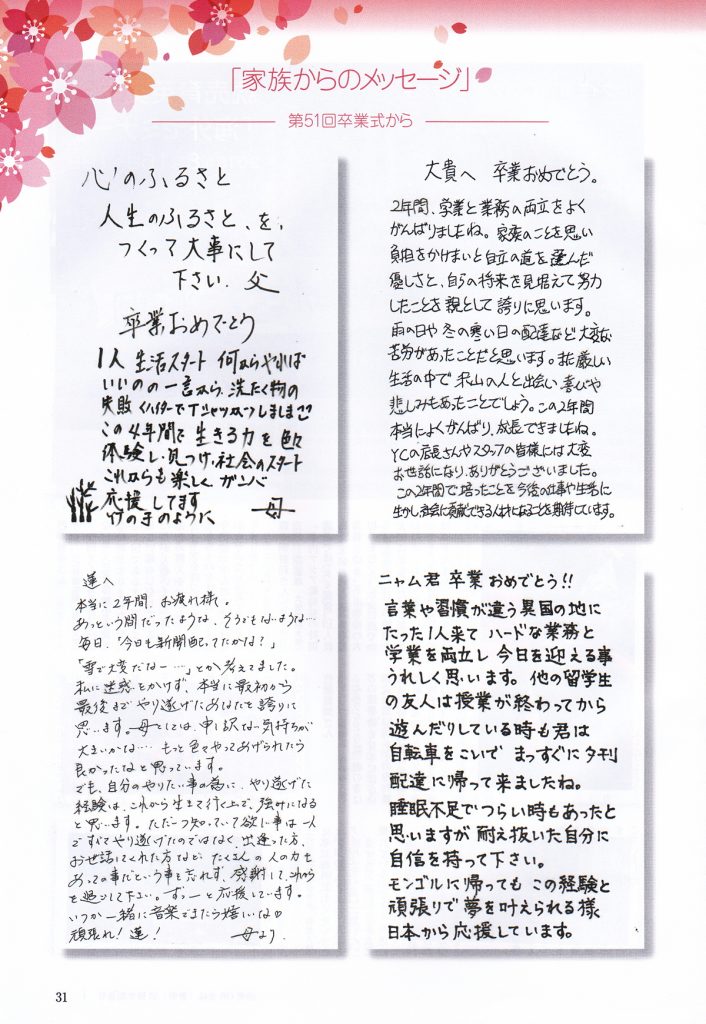 「家族からのメッセージ」
第51回卒業式から
心のふるさと
人生のふるさと、を、
つくって大事にして
下さい. 父
卒業おめでとう
1人 生活スタート 何からやれば
いいのの一言から、洗たく物の
失敗(ハイターでTシャツ
この4年間で 生きる力を 色々
体験し・見つけ・社会のスタート
これからも楽しく ガンバ
応援してます
竹の子のように 母
大貴へ 卒業おめでとう。
2年間、学業と業務の両立をよく
がんばりましたね。家族のことを思い
負担をかけまいと自立の道を選んだ
優しさと、自らの将来を見据えて努力
したことを親として誇りに思います。
雨の日や冬の寒い日の配達など大変な
苦労があったことだと思います。また厳しい
生活の中で沢山の人と出会い喜びや
悲しみもあったことでしょう。この2年間
本当によくがんばり、成長できましたね。
YCの店長さんやスタッフの皆様には大変
お世話になり、ありがとうございました。
この2年間で培ったことを今後の仕事や生活に
生かし、社会に貢献できる人材になることを期待しています。
蓮へ
本当に2年間、お疲れ様。
あっという間だったような、そうでもないような…
毎日、「今日も新聞配ってたかな?」
「雪で大変だなー…」とか考えてました。
私に迷惑をかけず、本当に最初から
最後までやり遂げたあなたを誇りに
思います。母としては、申し訳ない気持ちが
大きいかな… もっと色々やってあげられたら
良かったなと思っています。
でも、自分のやりたい事の為に、やり遂げた
経験は、これから生きて行く上で、強みになる
と思います。ただ一つ知っていて欲しい事は一人
ですべてやり遂げたのではなく、出逢った方、
お世話してくれた方など、たくさんの人の力も
あっての事だという事を忘れず、感謝して、これから
を過ごして下さい。ずーっと応援しています。
いつか一緒に音楽できたら嬉しいな♡
頑張れ!蓮! 母より
ニャム君 卒業おめでとう!!
言葉や習慣が違う異国の地に
たった1人来て ハードな業務と
学業を両立し 今日を迎える事
うれしく思います。他の留学生
の友人は授業が終わってから
遊んだりしている時も君は
自転車をこいで まっすぐに夕刊
配達に帰って来ましたね。
睡眠不足でつらい時もあったと
思いますが 耐え抜いた自分に
自信を持って下さい。
モンゴルに帰っても この経験と
頑張りで夢を叶えられる様
日本から応援しています。
31